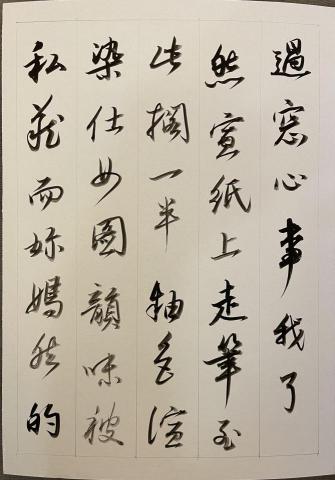 過窓心事我了
然宣紙上走筆至
此擱一半釉色渲
染仕女圖韻味被
私藏而妳嫣然的